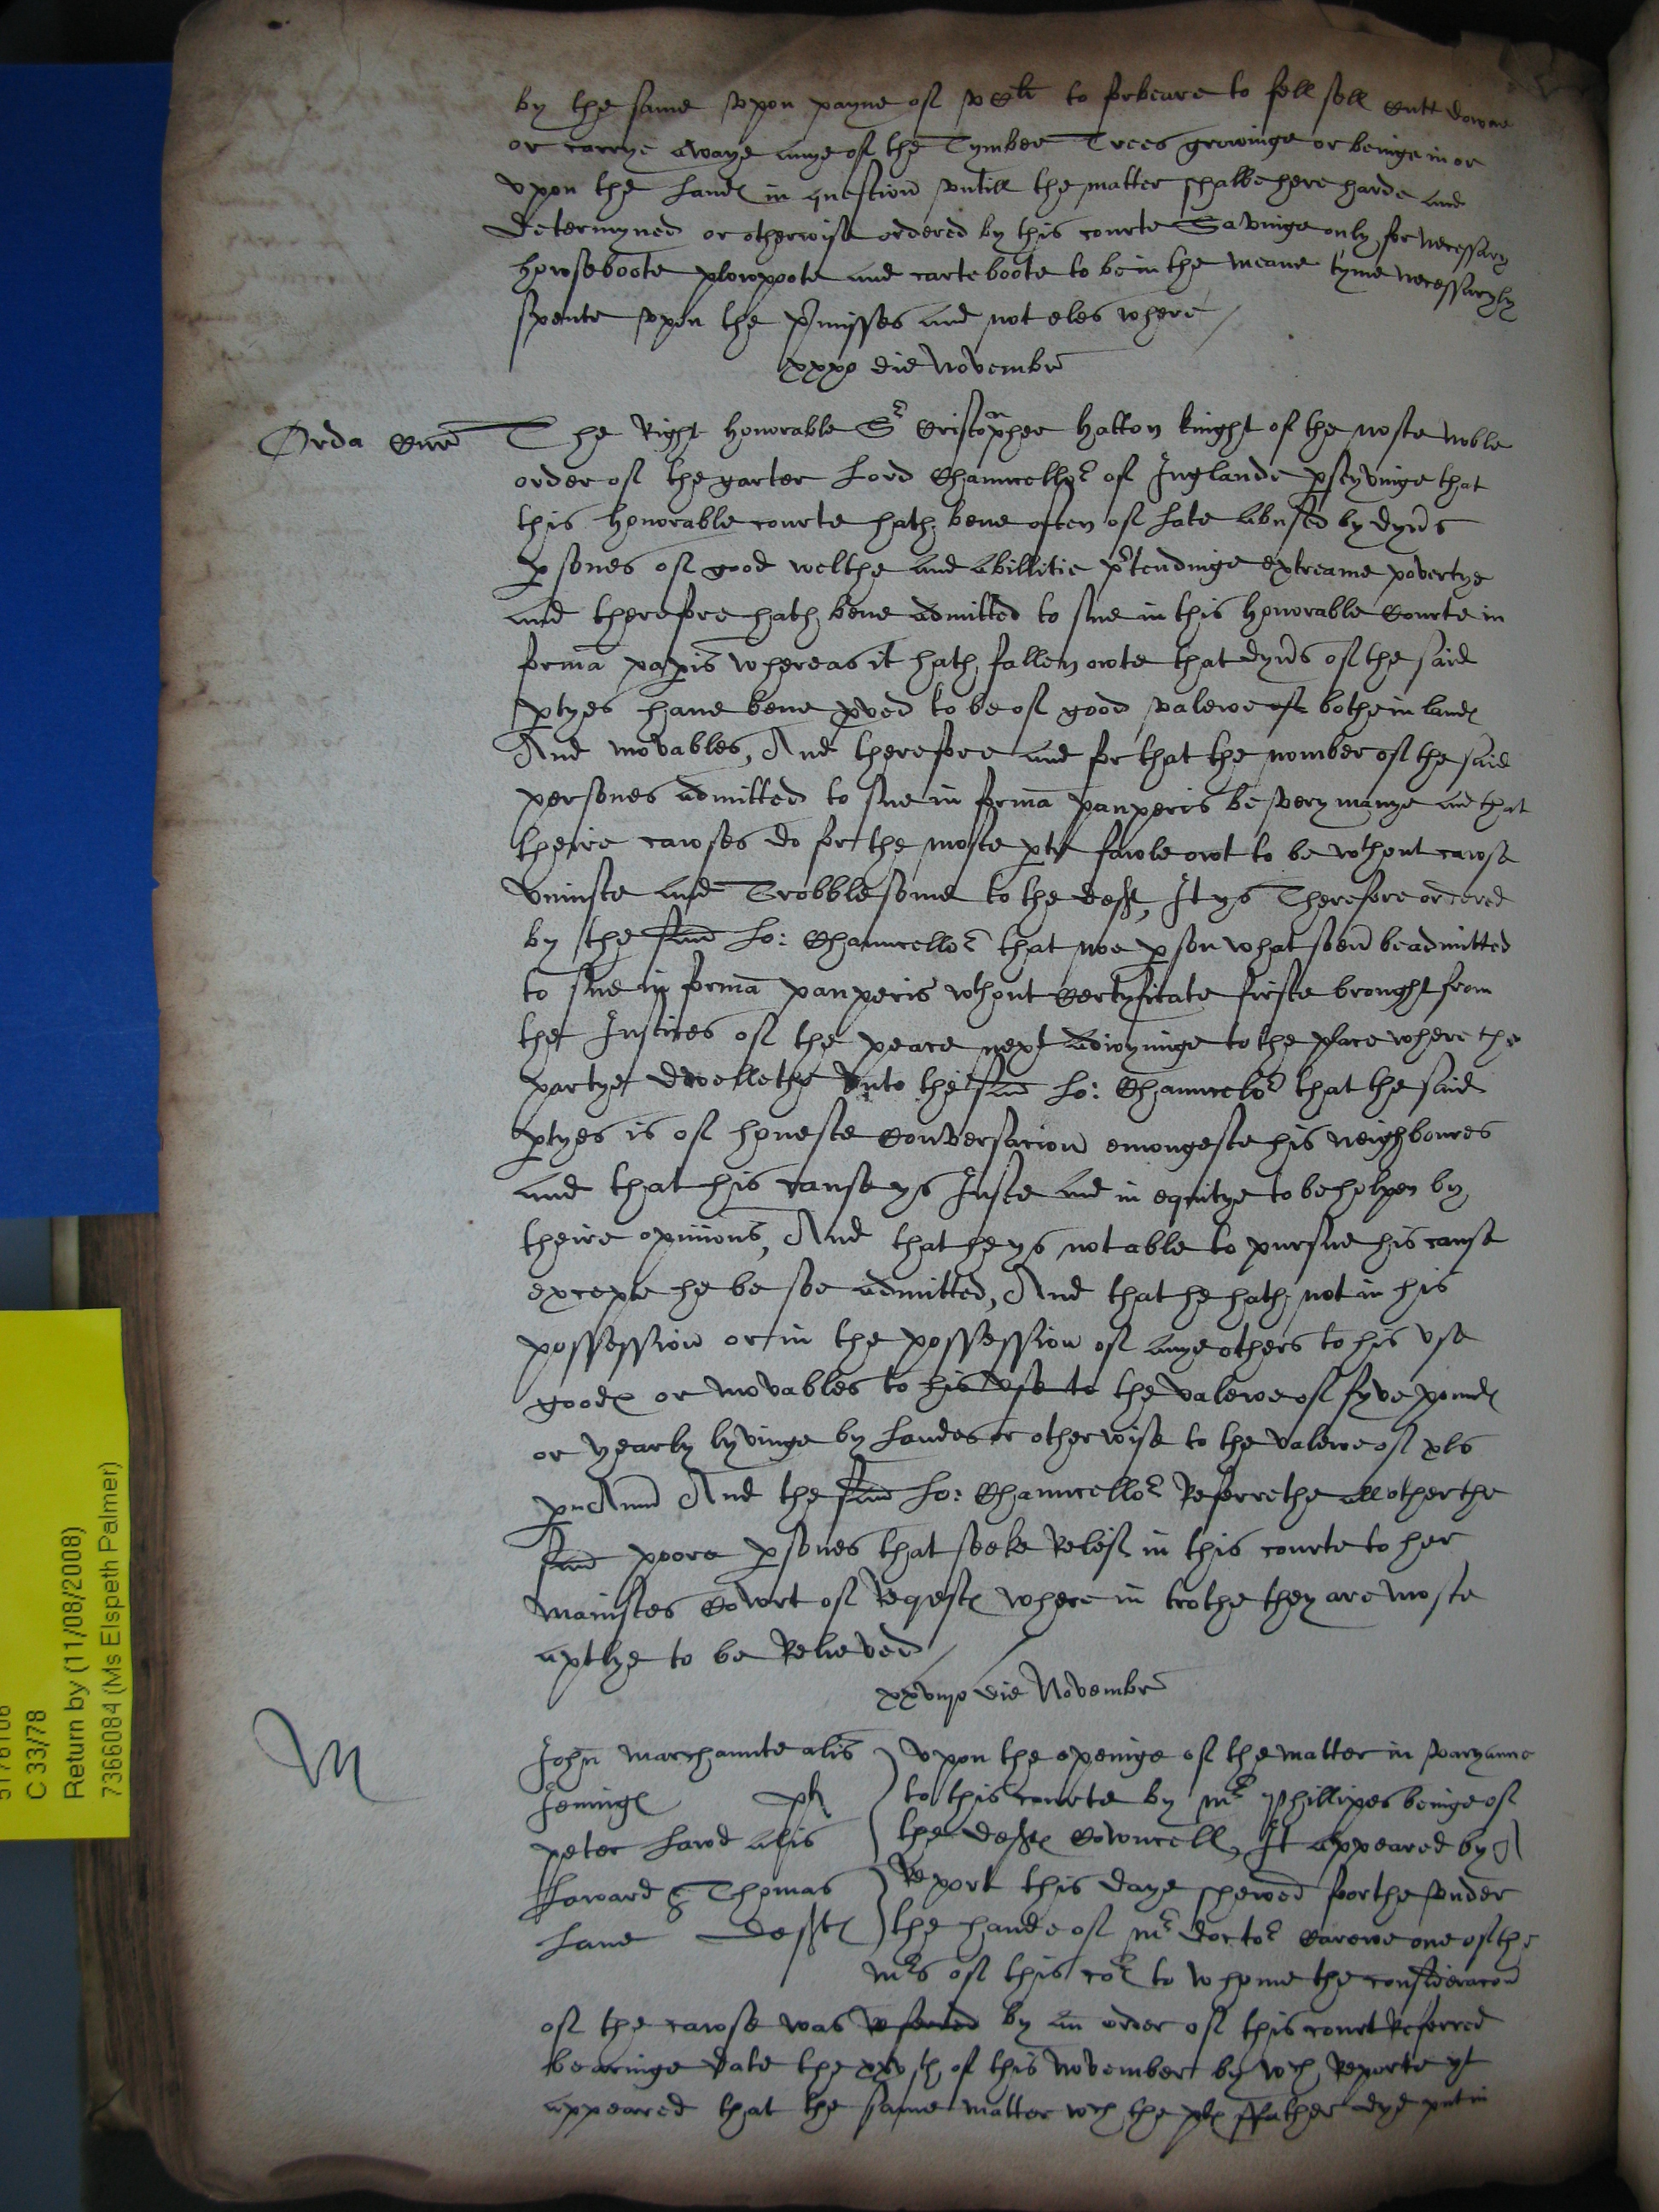 by the same vpon payne of v Cli to forbeare to fell sell Cutt downe
or carrye awaye anye of the Tymber Trees growinge or beinge in or
vpon the Landes in question vntill the matter shalbe here harde and
determyned or otherwise ordered by this courte Savinge only for necessary
howseboote plowboote and carteboote to be in the meane tyme necessaryly
spente vpon the pmisses and not eles where /
xxxo die Novembr
Orda Cur
The Right honorable Sr Cristopher hatton knight of the moste noble
order of the garter Lord Chauncellor of Inglande pseyvinge that
this honorable courte hath bene often of late abused by dyvers
psones of good welthe and abillitie ptendinge extreame povertye
and therefore hath bene admitted to sue in this honorable Courte in
forma papis whereas it hath fallen owte that dyvers of the said
ptyes haue bene pved to be of good valewe of bothe in landes
And movables, And therefore and for that the nomber of the said
persones admitted to sue in forma pauperis be very manye and that
theire cawses do for the moste pte fawle owt to be wthout cawse
vniuste and Trobblesome to the deft, It ys Therefore ordered
by the said Lo: Chauncellor that noe pson whatsoeuer be admitted
to sue in forma pauperis wthout Certyficate firste brought from
the Iustices of the peace next adioyninge to the place where the
partye dwellethe vnto the said Lo: Chauncelor that the said
ptyes is of honeste Conversacion emongeste his neighboures
and that his cause ys Iuste and in equitye to be holpen by
theire opinions, And that he ys not able to pursue his cause
excepte he be soe admitted, And that he hath not in his
possession or in the possession of anye others to his vse
goodes or movables to his vse to the valewe of fyve poundes
or yearly lyvinge by Landes or otherwise to the valewe of xls
p Annu And the said Lo: Chauncellor Referrethe all other the
said poore psones that seeke Relief in this courte to her
maiustes Cowrt of Requestes where in trothe they are moste
aptlye to be Relieved /
xxviijo die Novembr
John Marchaunte alis
Jeninges plt
peter Lawd alis
Laward & Thomas
Lane deftes
vpon the openinge of the matter in varyance
to this courte by mr Phillipes beinge of
the deftes Cowncell, It appeared by A
Report this daye shewed foorthe vnder
the hande of mr doctor Carewe one of the
mrs of this cort to whome the consideracon
of the cawse was by an order of this court Referred
bearinge date the xxvth of this November by wch Reporte yt
appeared that the same matter wch the ples ffather dyd put in